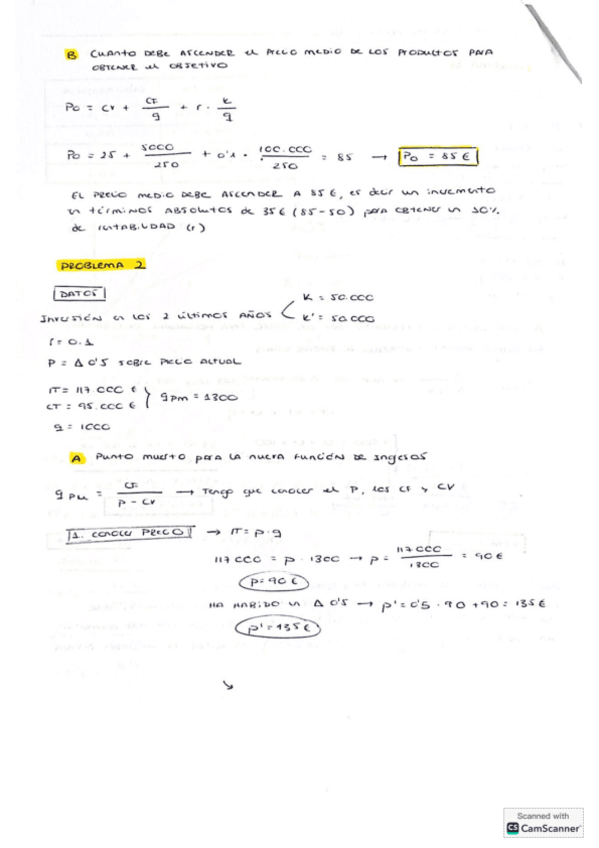 B CUANTO DEBE ASCENDER EL PRECIO MEDIO DE LOS PRODUCTOS PARA
OBTENER EL OBJETIVO
Po = CV + CF/q + r · K/q
Po = 25 + 5000/250 + 0'1 · 100.000/250 = 85 → Po = 85 €
EL PRECIO MEDIO DEBE ASCENDER A 85 €, es decir un incremento
en términos ABSOLUTOS de 35€ (85-50) para OBTENER un 10%
de rentabilidad (r)
PROBLEMA 2
DATOS
INVERSIÓN en los 2 últimos AÑOS < K = 50.000
K' = 50.000
r = 0.1
P = Δ 0'5 SOBRE PRECIO ACTUAL
IT = 117.000 €
CT = 95.000 € } qpm = 1300
q = 1000
A Punto muerto para la nueva función de Ingresos
qpm = CF/P - CV → Tengo que conocer el P, los CF y CV
1. CONOCER PRECIO → IT = p·q
117000 = p · 1300 → p = 117000/1300 = 90€
p = 90 €
HA HABIDO un Δ 0'5 → p' = 0'5 · 90 + 90 = 135€
p' = 135 €
↘
Scanned with
CS CamScanner